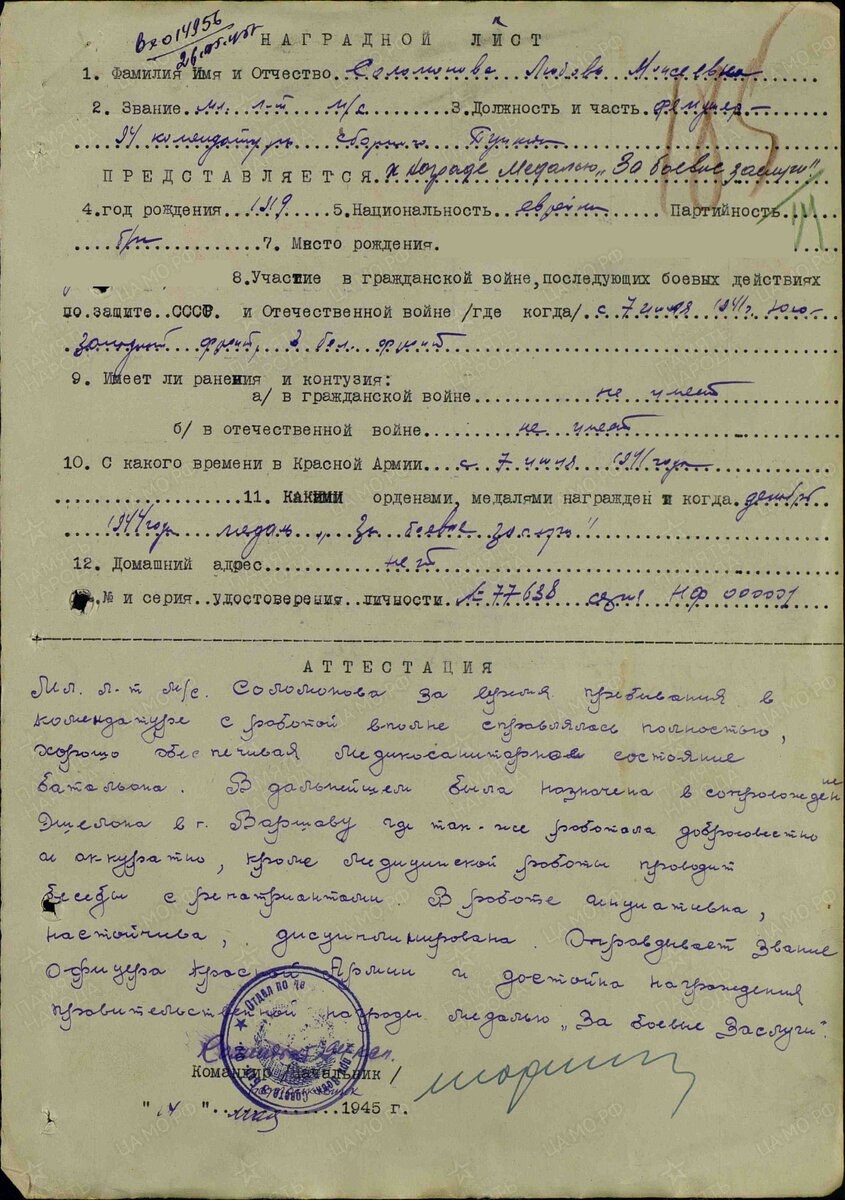 Вх 014956
26.05.45г
НАГРАДНОЙ ЛИСТ
185
1. Фамилия Имя и Отчество Саломонова Любовь Моисеевна
2. Звание мл. л-т м/с 3. Должность и часть фельдшер
94 комендатуры Сборного Пункта
ПРЕДСТАВЛЯЕТСЯ к награде Медалью „За боевые заслуги"
4. год рождения 1919 5. Национальность еврейка Партийность
б/п 7. Место рождения.
8. Участие в гражданской войне, последующих боевых действиях
по защите СССР и Отечественной войне /где когда/ с 7 июля 1941г. Юго-
западный фронт, 3 бел. фронт
9. Имеет ли ранения и контузия:
а/ в гражданской войне не имеет
б/ в отечественной войне не имеет
10. С какого времени в Красной Армии с 7 июля 1941 года
11. КАКИМИ орденами, медалями награжден и когда декабрь
1944 год медаль „За боевые заслуги"
12. Домашний адрес нет
№ и серия удостоверения личности № 77638 серия НФ 000001
АТТЕСТАЦИЯ
Мл. л-т м/с. Соломонова за время пребивания в
комендатуре с работой вполне справлялась полностью,
хорошо обеспечивая медикосанитарное состояние
батальона. В дальнейшем была назначена в сопровождении
Эшелона в г. Варшаву где так-же работала добросовестно
и аккуратно, кроме медицинской работы проводит
беседы с репатриантами. В работе инициативна,
настойчива, дисциплинирована. Оправдывает Звание
Офицера Красной Армии и достойна награждения
правительственной награды медалью „За боевые Заслуги".
Отдел по
Командир /Начальник/
"14" мая 1945 г.